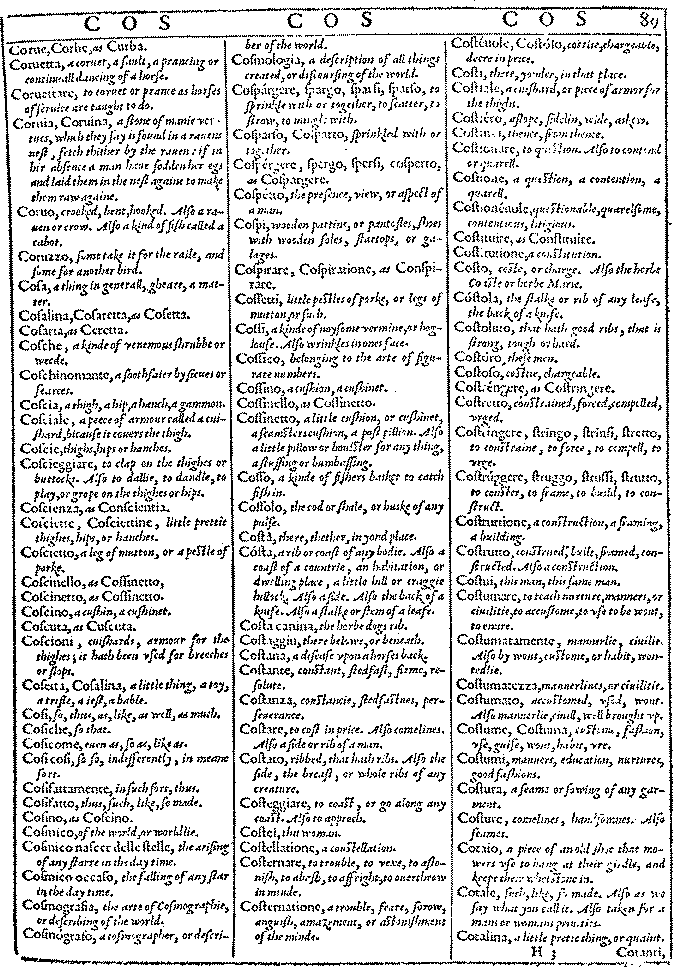 C O S C O S C O S 89
Corue, Corbe, as Curba.
Coruetta, a coruet, a sault, a prancing or
continuall dancing of a horse.
Coruettare, to coruet or prance as horses
of seruice are taught to do.
Coruia, Coruina, a stone of manie ver-
tues, which they say is found in a rauens
nest, fetch thither by the rauen: if in
hir absence a man haue sodden her egs
and laid them in the nest againe to make
them raw againe.
Coruo, crooked, bent, hooked. Also a ra-
uen or crow. Also a kind of fish called a
cabot.
Coruzzo, some take it for the raile, and
some for another bird.
Cosa, a thing in generall, gheare, a mat-
ter.
Cosalina, Cosaretta, as Cosetta.
Cosaria, as Ceretta.
Cosche, a kinde of venemous shrubbe or
weede.
Coschinomante, a soothsaier by sieues or
searces.
Coscia, a thigh, a hip, a hanch, a gammon.
Cosciale, a peece of armour called a cui-
shard, bicause it couers the thigh.
Coscie, thighs, hips or hanches.
Coscieggiare, to clap on the thighes or
buttocks. Also to dallie, to dandle, to
play, or grope on the thighes or hips.
Coscienza, as Conscientia.
Cosciette, Cosciettine, little prettie
thighes, hips, or hanches.
Coscietto, a leg of mutton, or a pestle of
porke.
Coscinello, as Cossinetto,
Coscinetto, as Cossinetto.
Coscino, a cushin, a cushinet.
Coscuta, as Cuscuta.
Coscioni, cuishards, armour for the
thighes; it hath been vsed for breeches
or slops.
Cosetta, Cosalina, a little thing, a toy,
a trifle, a iest, a bable.
Cosi, so, thus, as, like, as well, as much.
Cosiche, so that.
Cosicome, euen as, so as, like as.
Cosi cosi, so so, indifferently, in meane
sort.
Cosifattamente, in such sort, thus.
Cosifatto, thus, such, like, so made.
Cosino, as Coscino.
Cosmico, of the world, or worldlie.
Cosmico nascer delle stelle, the arising
of any starre in the day time.
Cosmico occaso, the falling of any star
in the day time.
Cosmografia, the arte of Cosmographie,
or describing of the world.
Cosmografo, a cosmographer, or descri-
ber of the world.
Cosmologia, a description of all things
created, or discoursing of the world.
Cospárgere, spargo, sparsi, sparso, to
sprinkle with or together, to scatter, to
straw, to mingle with.
Cosparso, Cosparto, sprinkled with or
together.
Cospérgere, spergo, spersi, cosperto,
as Cospargere.
Cospétto, the presence, view, or aspect of
a man.
Cospi, wooden pattins, or pantofles, shoes
with wooden soles, startops, or ga-
lages.
Cospirare, Cospiratione, as Conspi-
rare.
Cossetti, little pestles of porke, or legs of
mutton, or such.
Cossi, a kinde of noysome vermine, or hog-
louse. Also wrinkles in ones face.
Cossico, belonging to the arte of figu-
rate numbers.
Cossino, a cushion, a cushinet.
Cossinello, as Cossinetto.
Cossinetto, a little cushion, or cushinet,
a seamsters cushion, a post pillion. Also
a little pillow or boulster for any thing,
a stuffing or bumbasting.
Cosso, a kinde of fishers basket to catch
fish in.
Cossolo, the cod or shale, or huske of any
pulse.
Costà, there, thether, in yond place.
Cósta, a rib or coast of any bodie. Also a
coast of a countrie, an habitation, or
dwelling place, a little hill or craggie
hillock. Also a side. Also the back of a
knife. Also a stalke or stem of a leafe.
Costa canina, the herbe dogs rib.
Costaggiù, there below, or beneath.
Costana, a disease vpon a horses back.
Costante, constant, stedfast, firme, re-
solute.
Costanza, constancie, stedfastnes, per-
seuerance.
Costare, to cost in price. Also comelines.
Also a side or rib of a man.
Costato, ribbed, that hath ribs. Also the
side, the breast, or whole ribs of any
creature.
Costeggiare, to coast, or go along any
coast. Also to approch.
Costei, that woman.
Costellatione, a constellation.
Costernare, to trouble, to vexe, to asto-
nish, to abash, to affright, to ouerthrow
in minde.
Costernatione, a trouble, feare, sorow,
anguish, amazement, or astonishment
of the minde.
Costéuole, Costólo, costlie, chargeable,
deere in price.
Costì, there, yonder, in that place.
Costiale, a cuishard, or piece of armor for
the thigh.
Costiéro, aslope, sidelin, wide, askew.
Costinci, thence, from thence.
Costionare, to question. Also to contend
or quarell.
Costione, a question, a contention, a
quarell.
Costionéuole, questionable, quarelsome,
contentious, litigious.
Costituire, as Constituire.
Costitutione, a constitution.
Costo, coste, or charge. Also the herbe
Costle or herbe Marie.
Cóstola, the stalke or rib of any leafe,
the back of a knife.
Costoluto, that hath good ribs, that is
strong, tough or hard.
Costóro, these men.
Costoso, costlie, chargeable.
Costréngere, as Costringere.
Costretto, constrained, forced, compelled,
vrged.
Costríngere, stringo, strinsi, stretto,
to constraine, to force, to compell, to
vrge.
Costrúggere, struggo, strussi, strutto,
to conster, to frame, to build, to con-
struct.
Costruttione, a construction, a framing,
a building.
Costrutto, construed, built, framed, con-
structed. Also a construction.
Costui, this man, this same man.
Costumare, to teach nurture, manners, or
ciuilitie, to accustome, to vse to be wont,
to enure.
Costumatamente, mannerlie, ciuilie.
Also by wont, custome, or habit, won-
tedlie.
Costumatezza, mannerlines, or ciuilitie.
Costumato, accustomed, vsed, wont.
Also mannerlie, ciuill, well brought vp.
Costume, Costuma, custome, fashion,
vse, guise, wont, habit, vre.
Costumi, manners, education, nurture,
good fashions.
Costura, a seame or sowing of any gar-
ment.
Costure, comelines, handsomnes. Also
seames.
Cotaio, a piece of an old shoe that mo-
wers vse to hang at their girdle, and
keepe their whetstone in.
Cotale, such, like, so made. Also as we
say what you call it. Also taken for a
mans or womans priuities.
Cotalina, a little prettie thing, or quaint.
H 3 Cotanti,